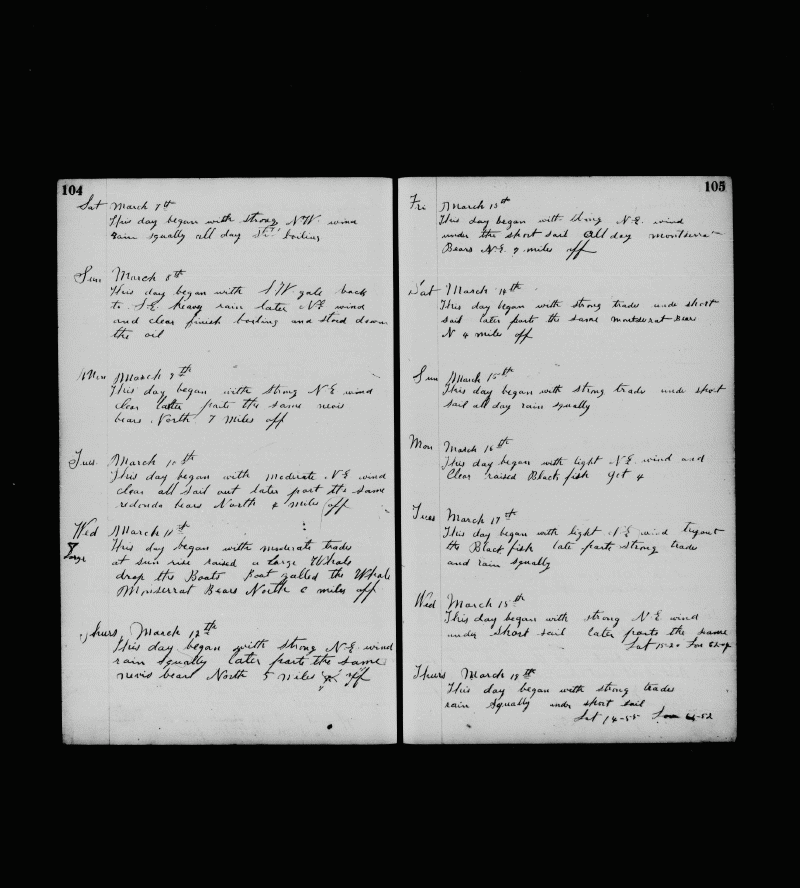 104
Sat March 7th
This day began with strong N.W. wind
rain squally all day still boiling
Sun March 8th
This day began with S.W gale back
to S.E. heavy rain later N.E. wind
and clear finish boiling and stood down
the oil
Mon March 9th
This day began with strong N.E wind
clear latter parts the same nevis
bears North 7 miles off
Tues March 10th
This day began with moderate N.E. wind
clear all sail out later part the same
redondo bears North 4 miles off
Wed March 11th
This day began with moderate trades
Large
at sun rise raised a large Whale
drop the Boats Boat galled the Whale
Monserrat Bears North 6 miles off
Thurs, March 12th
This day began with strong N.E. wind
rain squally later parts the same
nevis bear North 5 miles off
105
Fri March 13th
This day began with N.E. wind
under the short sail All day montserrat
Bears N.E. 9 miles off
Sat March 14th
This day began with strong trades unde short
sail later parts the same montserrat Bears
N 4 miles off
Sun March 15th
This day began with strong trade unde short
sail all day rain squally
Mon March 16th
This day began with light N.E. wind and
Clear raised Black fish got 4
Tues March 17th
This day began with light N.E wind tryout
the Black fish late parts strong trades
and rain squally
Wed March 18th
This day began with strong N.E. wind
under short sail later parts the same
Lat 15-20 Lon
Thurs March 19th
This day began with strong trades
rain squally unde short sail
Lat 14-55 Lon